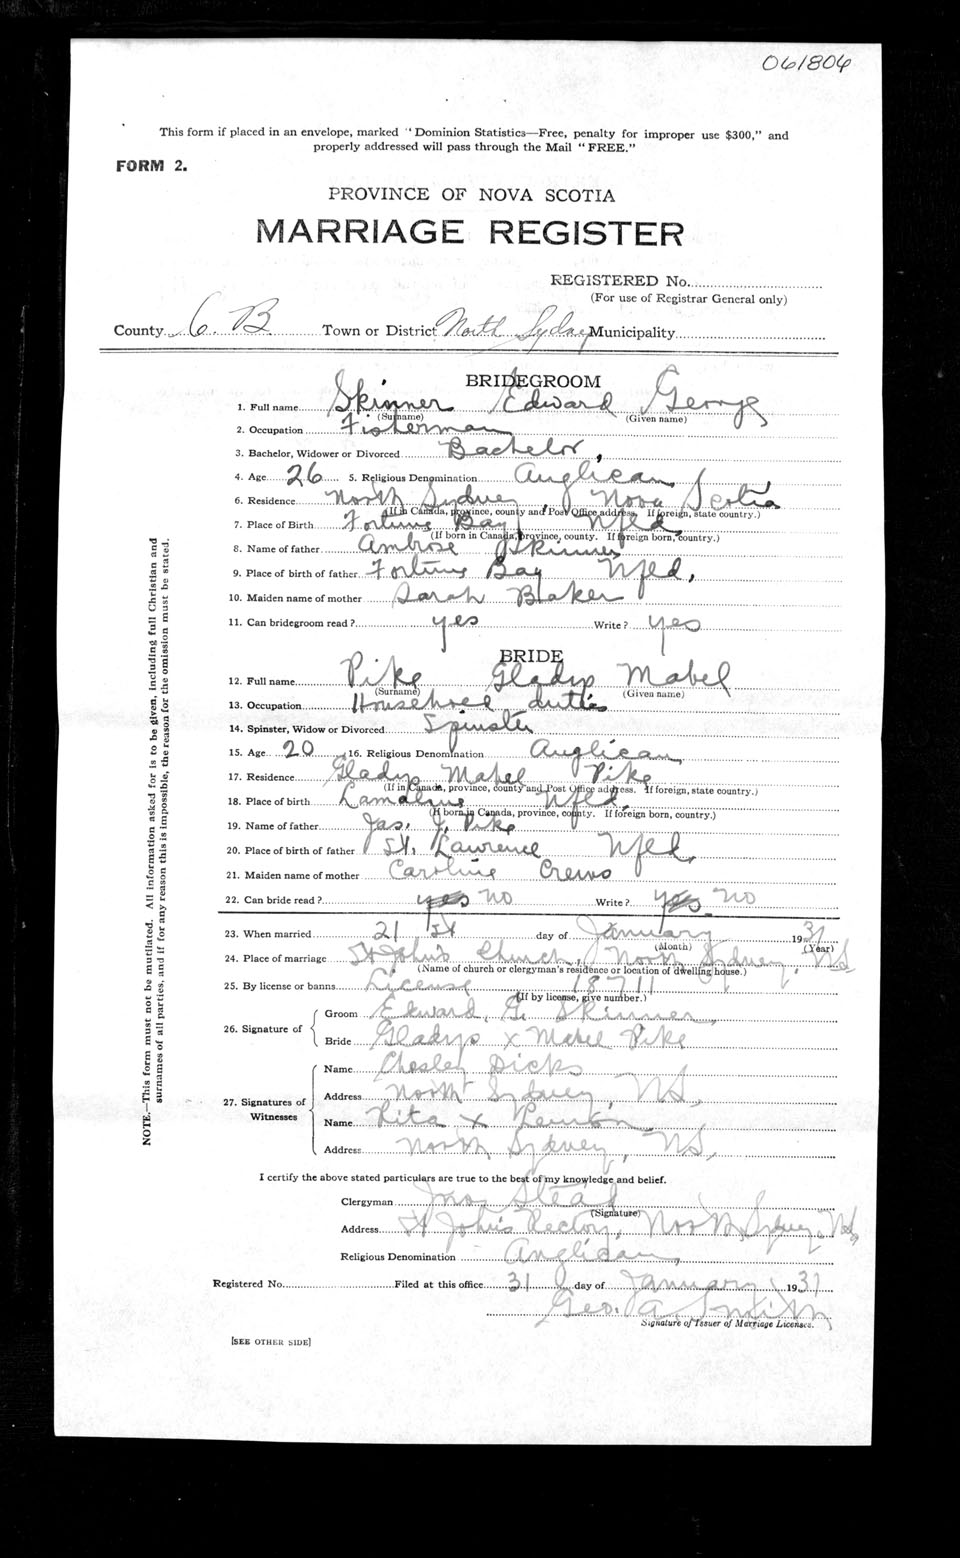 061806
This form if placed in an envelope, marked "Dominion Statistics—Free, penalty for improper use $300," and
properly addressed will pass through the Mail "FREE."
FORM 2.
PROVINCE OF NOVA SCOTIA
MARRIAGE REGISTER
REGISTERED No.
(For use of Registrar General only)
County C. B Town or District North Sydney Municipality
BRIDEGROOM
1. Full name Skinner Edward George
(Surname) (Given name)
2. Occupation Fisherman
3. Bachelor, Widower or Divorced Bachelor,
4. Age 26 5. Religious Denomination Anglican,
6. Residence North Sydney Nova Scotia
(If in Canada, province, county and Post Office address. If foreign, state country.)
7. Place of Birth Fortune Bay Nfld.
(If born in Canada, province, county. If foreign born, country.)
8. Name of father Ambrose Skinner
9. Place of birth of father Fortune Bay Nfld,
10. Maiden name of mother Sarah Baker
11. Can bridegroom read? yes Write? yes
BRIDE
12. Full name Pike Gladys Mabel
(Surname) (Given name)
13. Occupation Household duties
14. Spinster, Widow or Divorced Spinster
15. Age 20 16. Religious Denomination Anglican,
17. Residence Gladys Mabel Pike
(If in Canada, province, county and Post Office address. If foreign, state country.)
18. Place of birth Lamaline Nfld,
(If born in Canada, province, county. If foreign born, country.)
19. Name of father Jas. J. Pike
20. Place of birth of father St. Lawrence Nfld,
21. Maiden name of mother Caroline Crews
22. Can bride read? yes No Write? yes No
23. When married 21 st day of January 1931
(Month) (Year)
24. Place of marriage St John's Church, North Sydney, NS
(Name of church or clergyman's residence or location of dwelling house.)
25. By license or banns License 18711
(If by license, give number.)
26. Signature of Groom Edward, G. Skinner,
Bride Gladys x Mabel Pike
27. Signatures of Witnesses Name Chesley Dicks
Address North Sydney, NS,
Name Rita x
Address North Sydney, NS,
I certify the above stated particulars are true to the best of my knowledge and belief.
Clergyman Jno, Stead
(Signature)
Address St John's Rectory, North Sydney, NS,
Religious Denomination Anglican,
Registered No. Filed at this office 31 day of January 1931
Geo. A. Smith
Signature of Issuer of Marriage Licenses.
[SEE OTHER SIDE]
NOTE.—This form must not be mutilated. All information asked for is to be given, including full Christian and
surnames of all parties, and if for any reason this is impossible, the reason for the omission must be stated.